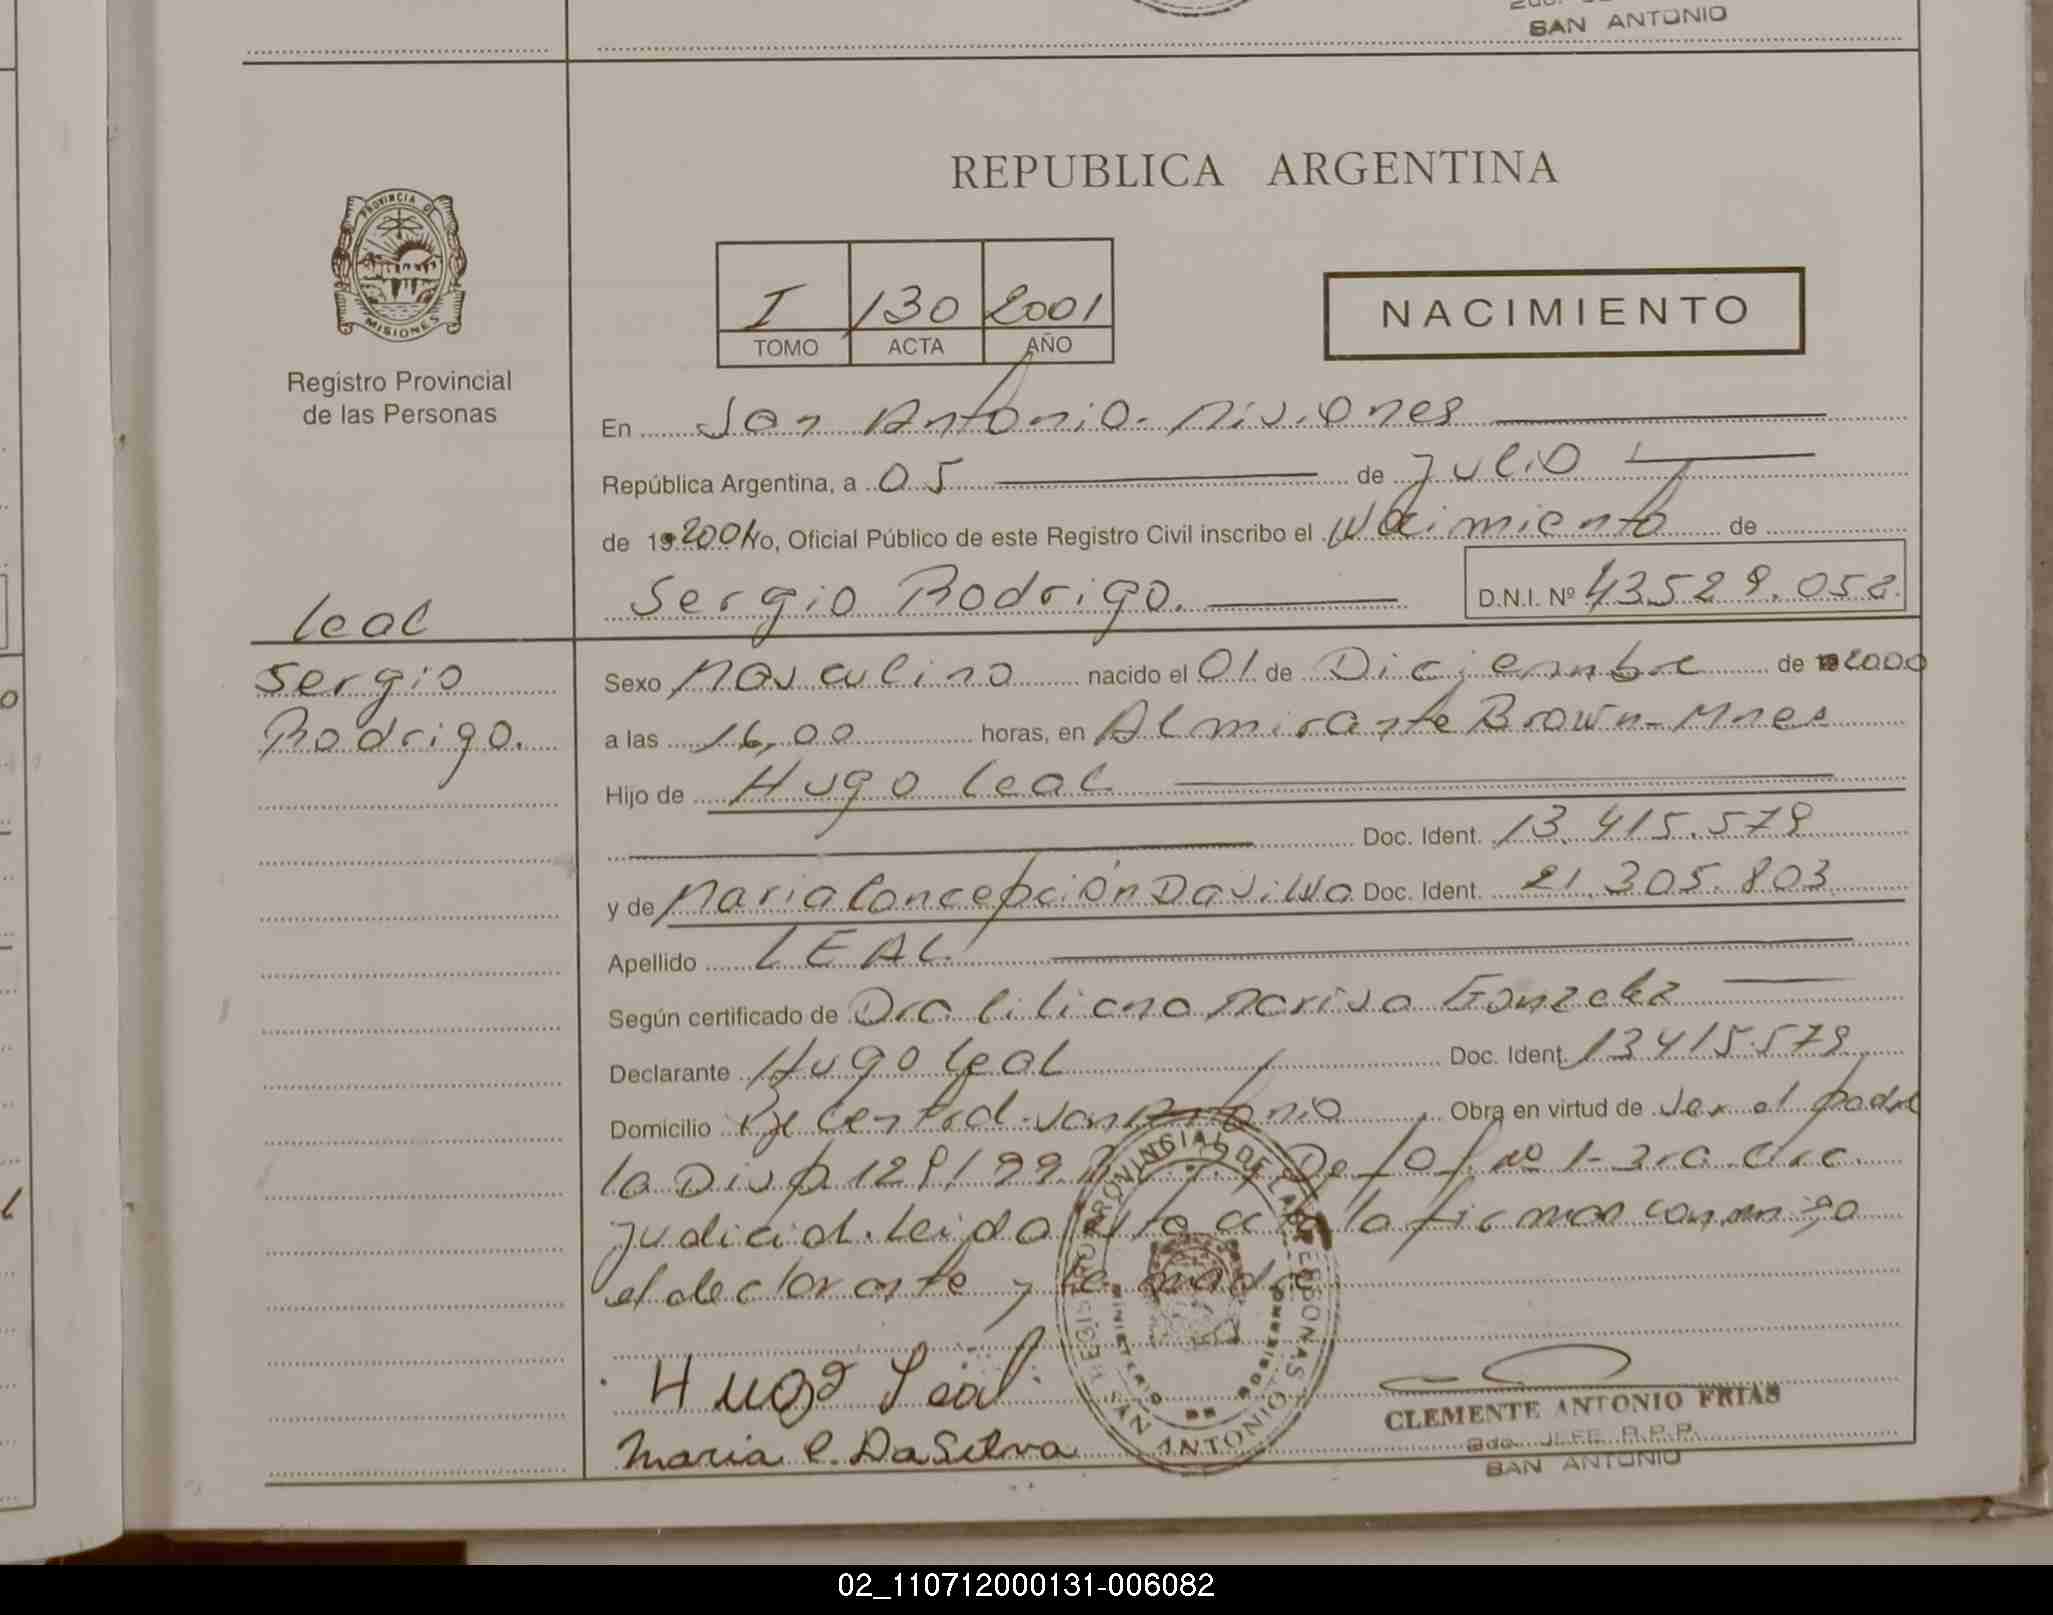 SAN ANTONIO
PROVINCIA DE
MISIONES
Registro Provincial
de las Personas
Leal
Sergio
Rodrigo.
REPUBLICA ARGENTINA
I 130 2001
TOMO ACTA AÑO
NACIMIENTO
En San Antonio. Misiones
República Argentina, a 05 de Julio
de 19 2001 Yo, Oficial Público de este Registro Civil inscribo el Nacimiento de
Sergio Rodrigo. D.N.I. Nº 43.529.052.
Sexo Masculino nacido el 01 de Diciembre de 2000
a las 16,00 horas, en Almirante Brown - Mnes
Hijo de Hugo Leal
Doc. Ident. 13.415.579
y de Maria Concepción Da Silva Doc. Ident. 21.305.803
Apellido LEAL
Según certificado de Dra Liliana Marisa Gonzalez
Declarante Hugo Leal Doc. Ident. 13.415.579
Domicilio Central. San Antonio Obra en virtud de ser el padre
la Disp. 129/99 De la J. nº 1- 3ra Circ.
Judicial. Leida el acta la firman conmigo
el declarante y la madre
Hugo Leal
Maria C. Da Silva
REGISTRO PROVINCIAL DE LAS PERSONAS
MINISTERIO DE GOBIERNO
SAN ANTONIO
CLEMENTE ANTONIO FRIAS
2do. JEFE R.P.P.
SAN ANTONIO
02_110712000131-006082